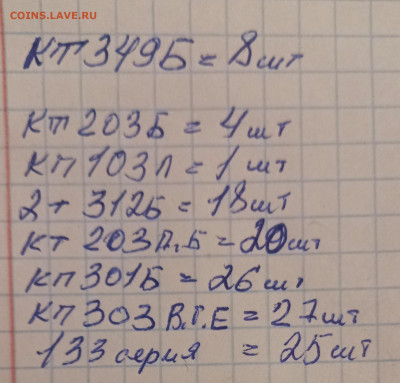 COINS.LAVE.RU
КТ349Б = 8шт
КТ203Б = 4шт
КП103Л = 1 шт
2т 312Б = 18шт
КТ 203Л,Б = 20шт
КП301Б = 26шт
КП303 В.Г.Е = 27шт
133 серия = 25шт